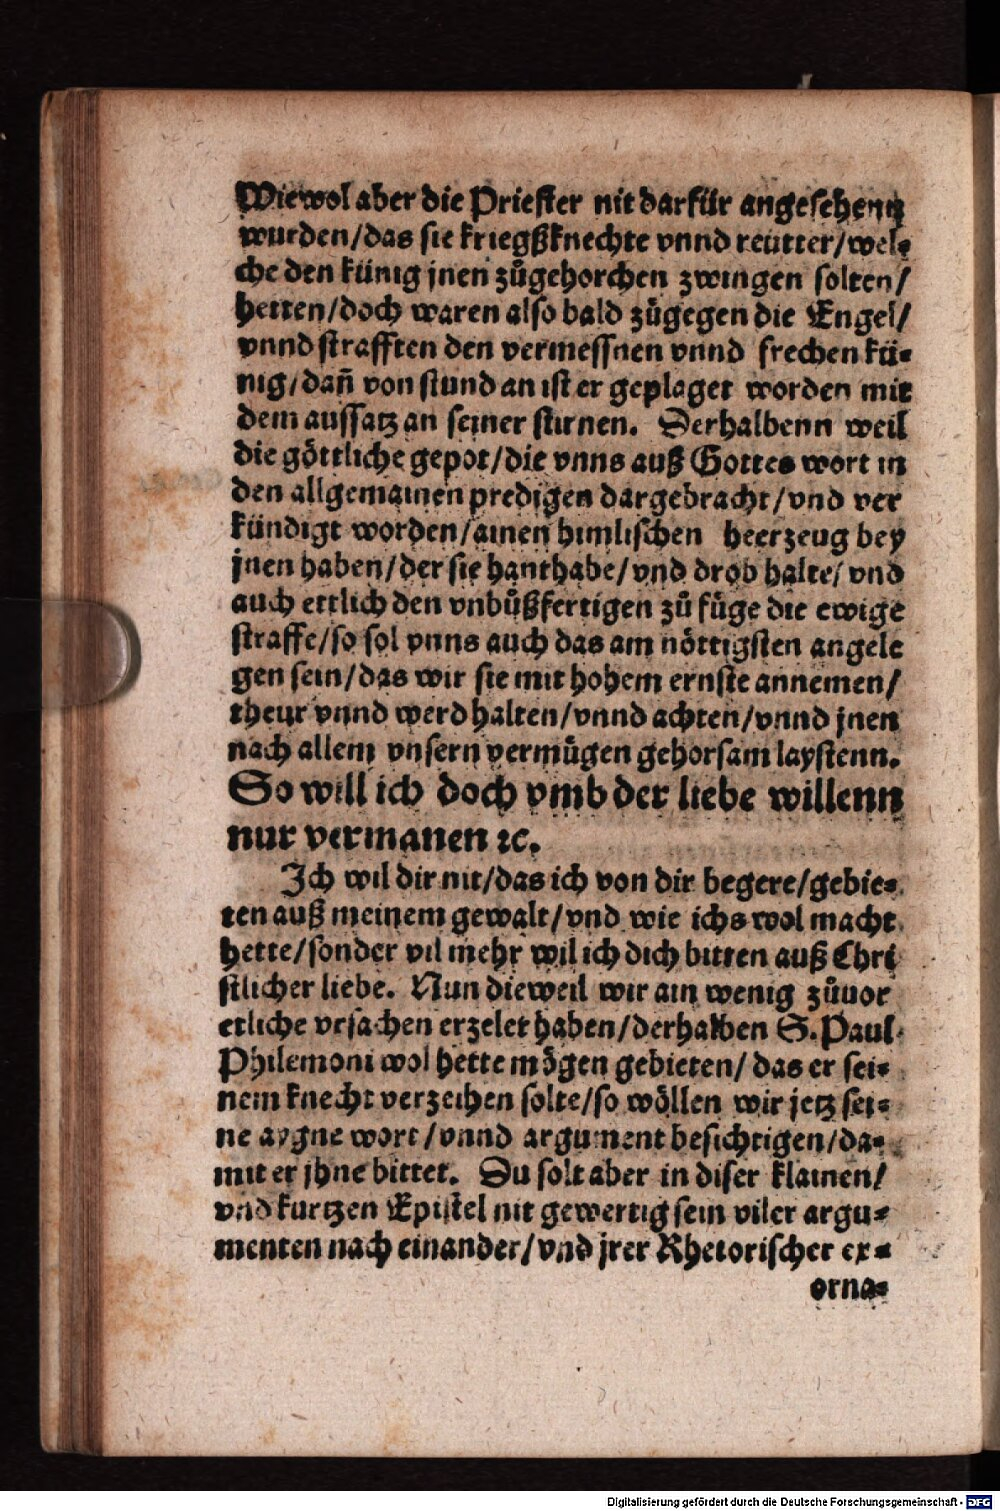 Wiewol aber die Priester nit darfür angesehenn
wurden/das sie kriegßknechte vnnd reutter/wel-
che den künig jnen zůgehorchen zwingen solten/
hetten/doch waren also bald zůgegen die Engel/
vnnd strafften den vermessnen vnnd frechen kü-
nig/dañ von stund an ist er geplaget worden mit
dem aussatz an seiner stirnen. Derhalbenn weil
die göttliche gepot/die vnns auß Gottes wort in
den allgemainen predigen dargebracht/vnd ver
kündigt worden/ainen himlischen heerzeug bey
jnen haben/der sie hanthabe/vnd drob halte/vnd
auch ettlich den vnbůßfertigen zů füge die ewige
straffe/so sol vnns auch das am nöttigsten angele
gen sein/das wir sie mit hohem ernste annemen/
theur vnnd werd halten/vnnd achten/vnnd jnen
nach allem vnsern vermügen gehorsam laystenn.
So will ich doch vmb der liebe willenn
nur vermanen ꝛc.
Ich wil dir nit/das ich von dir begere/gebie-
ten auß meinem gewalt/vnd wie ichs wol macht
hette/sonder vil mehr wil ich dich bitten auß Chri
stlicher liebe. Nun dieweil wir ain wenig zůuor
etliche vrsachen erzelet haben/derhalben S. Paul
Philemoni wol hette mögen gebieten/das er sei-
nem knecht verzeihen solte/so wöllen wir jetz sei-
ne aygne wort/vnnd argument besichtigen/da-
mit er jhne bittet. Du solt aber in diser klainen/
vnd kurtzen Epistel nit gewertig sein viler argu-
menten nach einander/vnd jrer Rhetorischer ex-
orna-
Digitalisierung gefördert durch die Deutsche Forschungsgemeinschaft - DFG